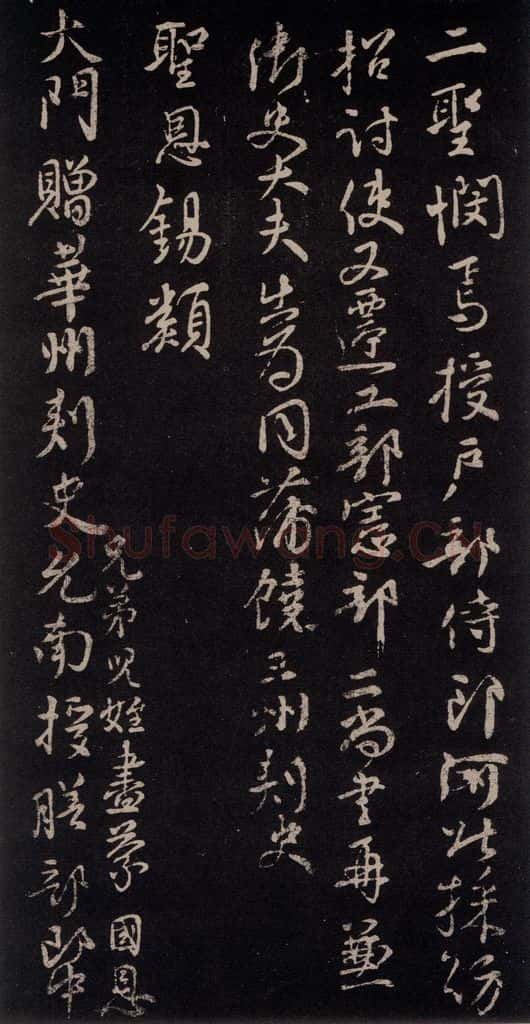 二聖憫焉授戶部侍郎河北採訪
招討使又遷工部憲部二尚書再兼
御史大夫出為同蒲饒三州刺史
聖恩錫類
兄弟兒姪盡蒙國恩
大門贈華州刺史允南授膳部郎中
Shufawang.Cn